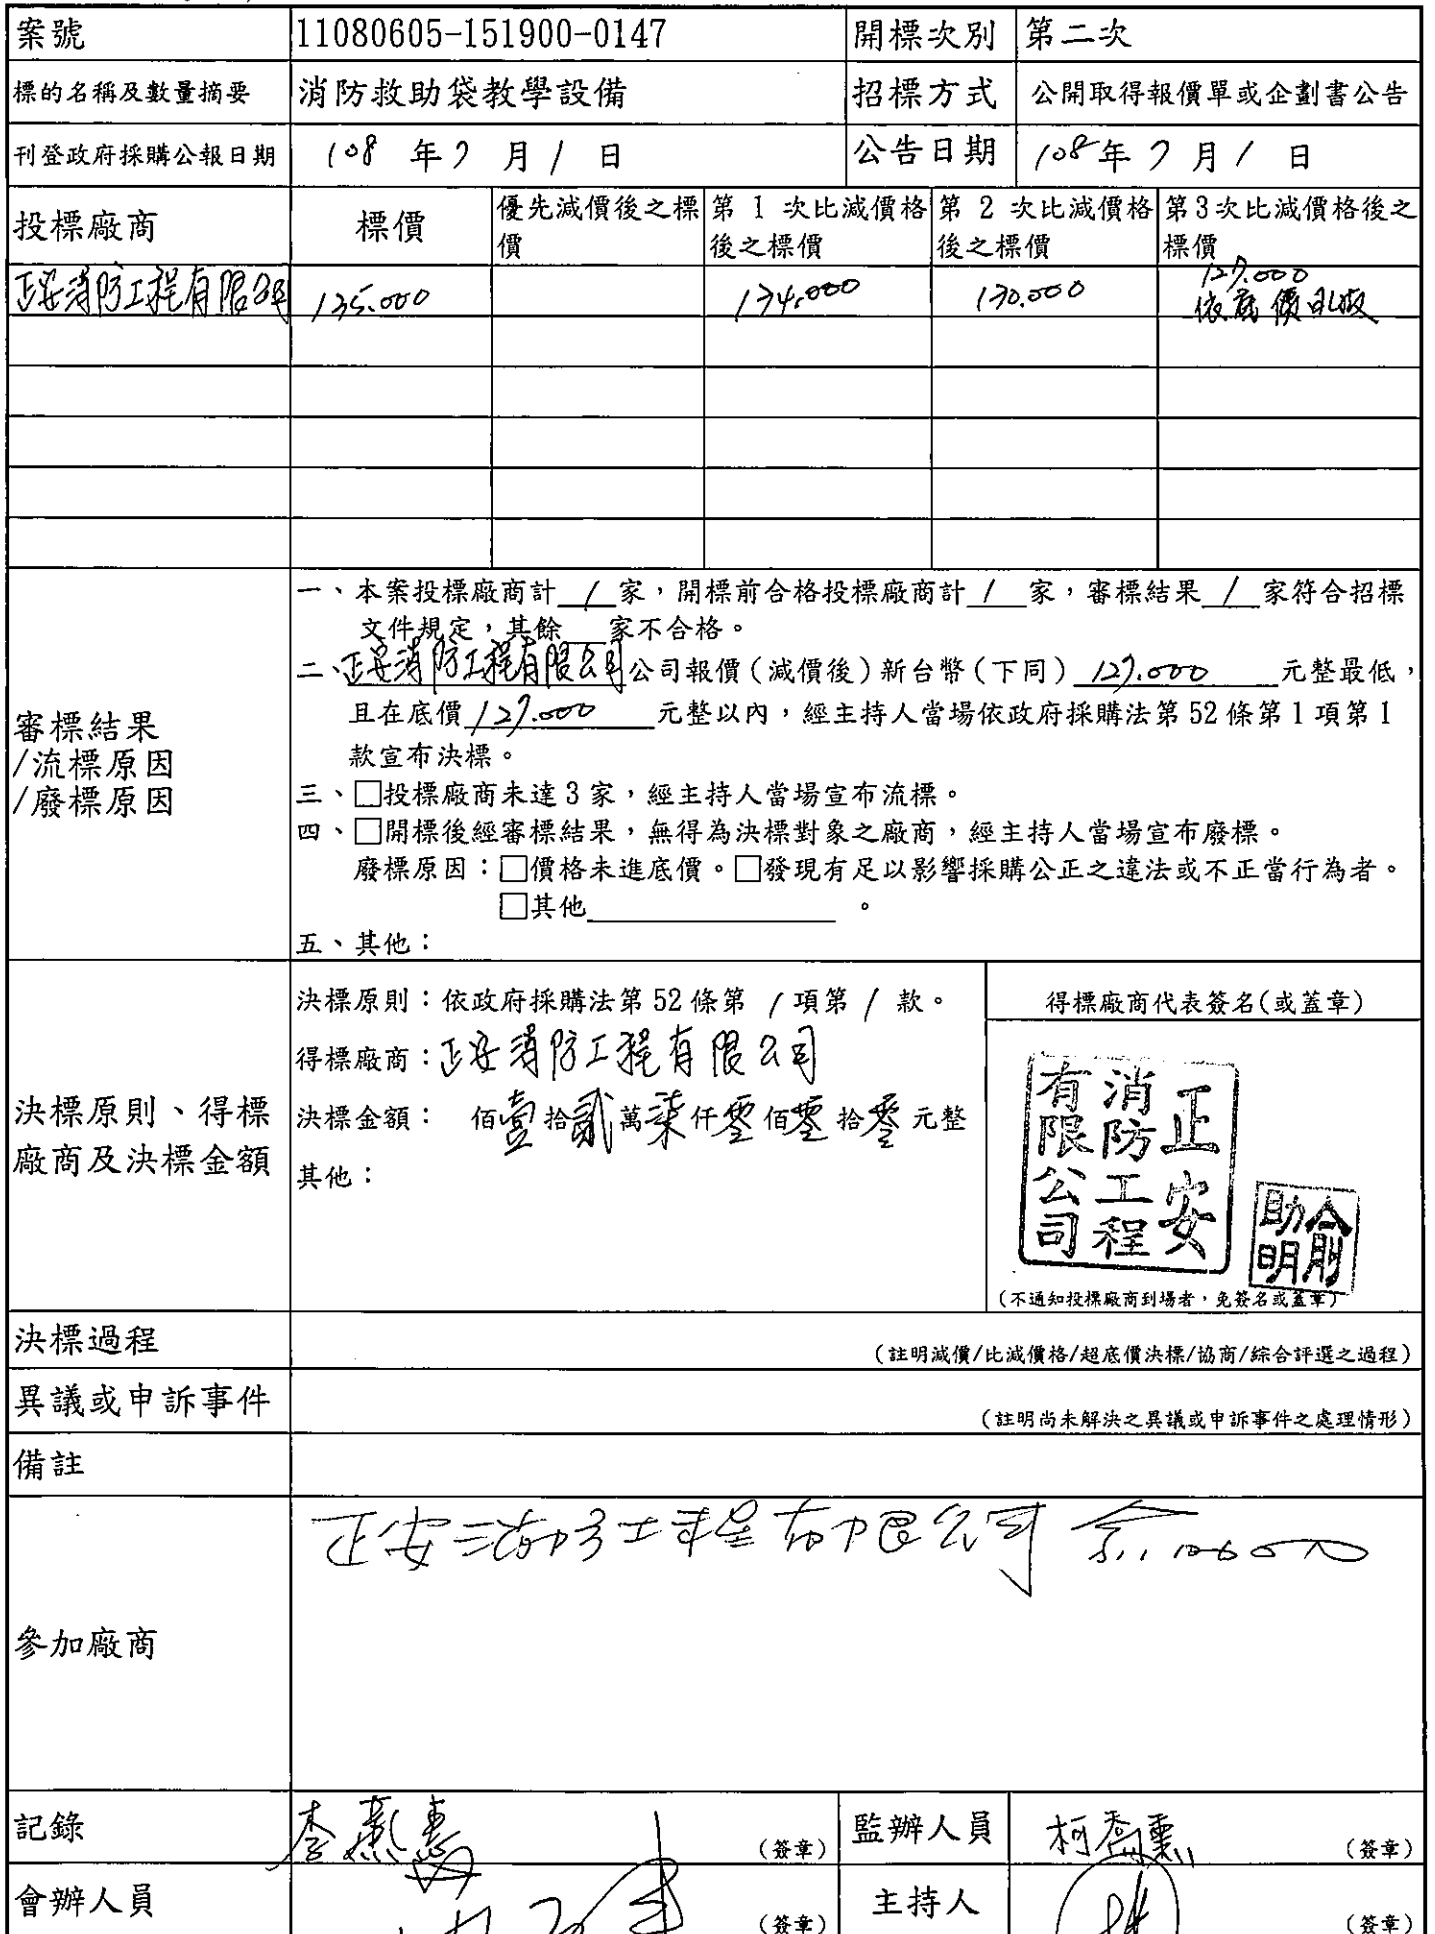 案號 11080605-151900-0147 開標次別 第二次
標的名稱及數量摘要 消防救助袋教學設備 招標方式 公開取得報價單或企劃書公告
刊登政府採購公報日期 108 年 7 月 1 日 公告日期 108 年 7 月 1 日
投標廠商 標價 優先減價後之標價 第 1 次比減價格後之標價 第 2 次比減價格後之標價 第3次比減價格後之標價
正安消防工程有限公司 135.000 134.000 130.000 127.000
依底價承做
審標結果
/流標原因
/廢標原因
一、本案投標廠商計 1 家，開標前合格投標廠商計 1 家，審標結果 1 家符合招標
文件規定，其餘 家不合格。
二、正安消防工程有限公司公司報價（減價後）新台幣（下同） 127.000 元整最低，
且在底價 127.000 元整以內，經主持人當場依政府採購法第 52 條第 1 項第 1
款宣布決標。
三、□投標廠商未達 3 家，經主持人當場宣布流標。
四、□開標後經審標結果，無得為決標對象之廠商，經主持人當場宣布廢標。
廢標原因：□價格未進底價。□發現有足以影響採購公正之違法或不正當行為者。
□其他 。
五、其他：
決標原則、得標
廠商及決標金額
決標原則：依政府採購法第 52 條第 1 項第 1 款。
得標廠商：正安消防工程有限公司
決標金額： 佰壹拾貳萬柒仟零佰零拾零元整
其他：
得標廠商代表簽名(或蓋章)
正安
消防工程
有限公司
俞
助明
（不通知投標廠商到場者，免簽名或蓋章）
決標過程 （註明減價/比減價格/超底價決標/協商/綜合評選之過程）
異議或申訴事件 （註明尚未解決之異議或申訴事件之處理情形）
備註
參加廠商 正安消防工程有限公司
記錄 （簽章） 監辦人員 （簽章）
會辦人員 （簽章） 主持人 （簽章）